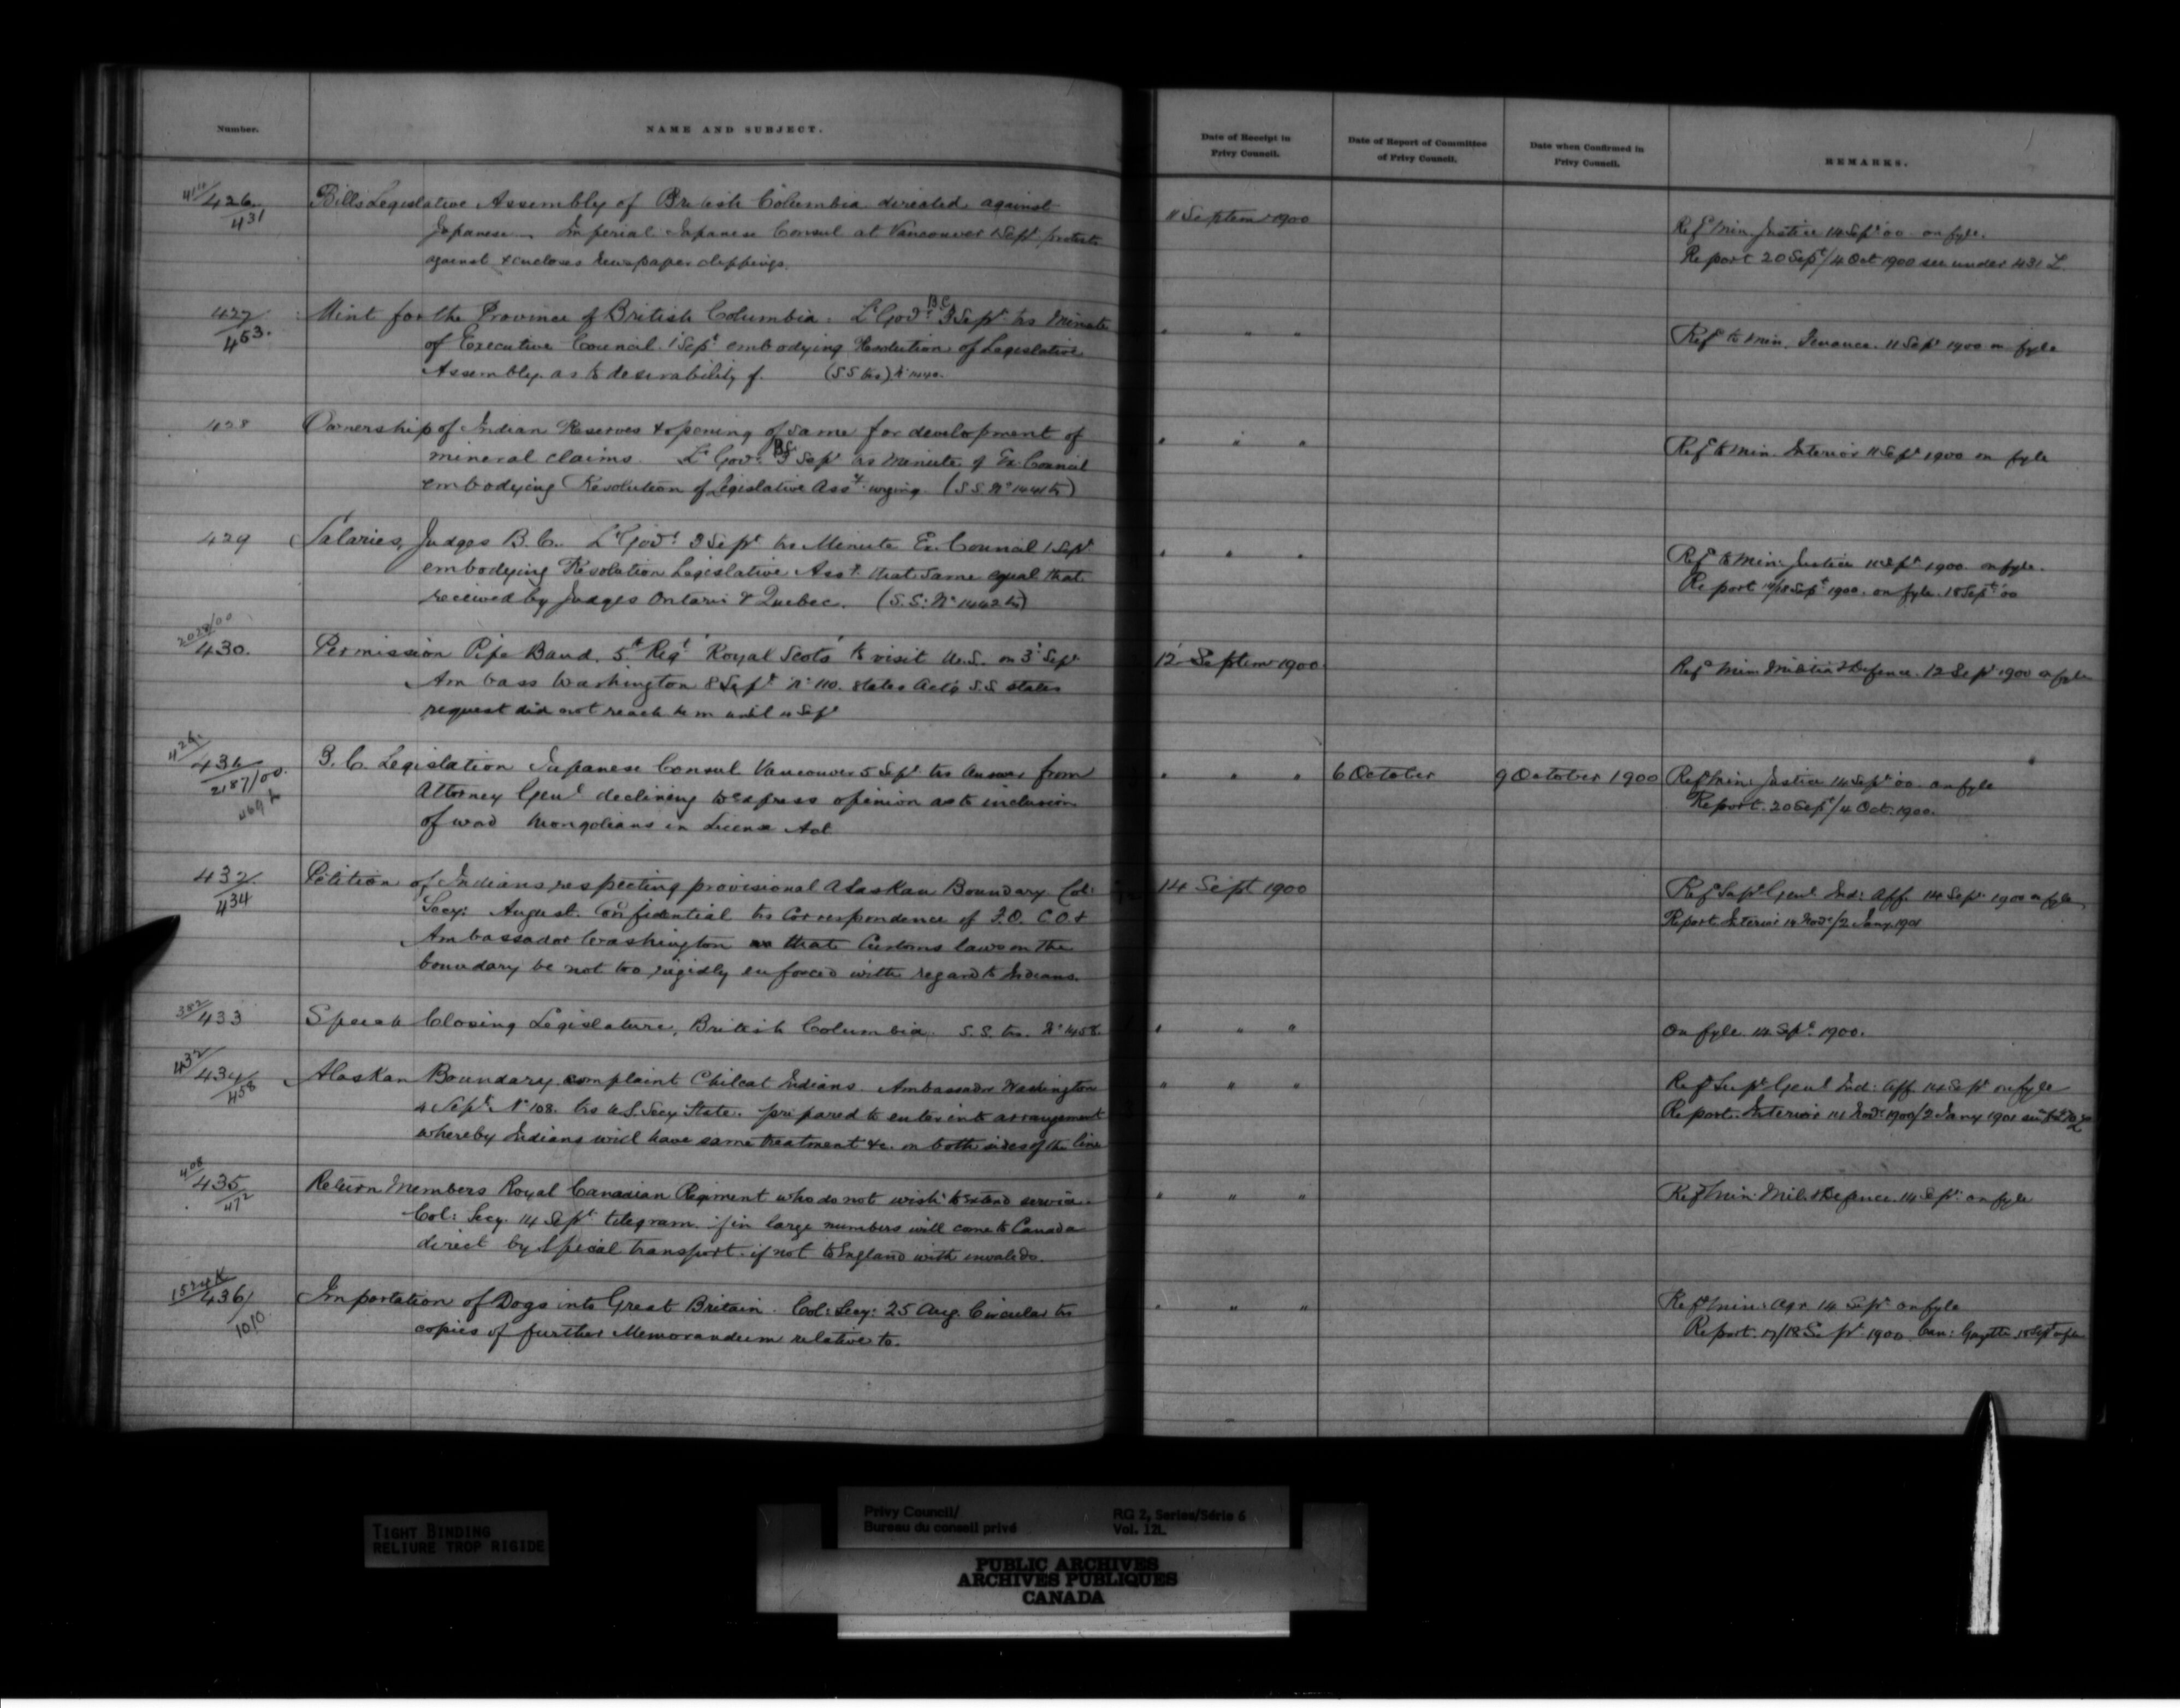 Number.
NAME AND SUBJECT.
Date of Receipt in
Privy Council.
Date of Report of Committee
of Privy Council.
Date when Confirmed in
Privy Council.
REMARKS.
426
431
Bills Legislative Assembly of British Columbia directed against
Japanese. Imperial Japanese Consul at Vancouver 1 Sept protests
against & encloses newspaper clippings.
11 Septemr 1900
Refd Min. Justice 14 Sept 00 on fyle.
Report 20 Sept/4 Oct 1900 see under 431 L.
427
453.
Mint for the Province of British Columbia. Lt Govr B.C. 3 Sept trs Minute
of Executive Council 1 Sept embodying Resolution of Legislative
Assembly as to desirability of. (SS trs) No 1440.
" " "
Refd to Min. Finance. 11 Sept 1900 on fyle
428
Ownership of Indian Reserves & opening of same for development of
mineral claims. Lt Govr B.C. 3 Sept trs Minute of Ex. Council
embodying Resolution of Legislative Assy urging. (S.S. No 1441 trs)
" " "
Refd to Min. Interior 11 Sept 1900 on fyle
429
Salaries, Judges B.C. Lt Govr 3 Sept trs Minute Ex. Council 1 Sept
embodying Resolution Legislative Assy that same equal that
received by Judges Ontario & Quebec. (S.S. No 1442 trs)
" " "
Refd to Min. Justice 11 Sept 1900. on fyle.
Report 14/18 Sept 1900. on fyle 18 Sept 00
2028/00
430.
Permission Pipe Band. 5th Regt 'Royal Scots' to visit U.S. on 3 Sept
Ambass Washington 8 Sept No 110. states Actg S.S. states
request did not reach him until 4 Sept
12 Septemr 1900
Refd Min. Militia & Defence. 12 Sept 1900 on fyle
426
431
2187/00.
469 L
B.C. Legislation Japanese Consul Vancouver 5 Sept trs answer from
Attorney Genl declining to express opinion as to inclusion
of word Mongolians in License Act
" " "
6 October
9 October 1900
Refd Min. Justice 14 Sept 00 on fyle
Report. 20 Sept/4 Oct. 1900.
432
434
Petition of Indians respecting provisional Alaskan Boundary Col:
Secy: August. Confidential trs Correspondence of F.O. C.O. &
Ambassador Washington that Customs laws on the
boundary be not too rigidly enforced with regard to Indians.
14 Sept 1900
Refd Supt Genl Ind: Aff. 14 Sept 1900 on fyle
Report Interior 14 Novr/2 Jany 1901
382
433
Speech Closing Legislature, British Columbia. S.S. trs. No 1458.
" " "
On fyle. 14 Sept 1900.
432
434
458
Alaskan Boundary complaint Chilcat Indians. Ambassador Washington
4 Sept No 108. trs U.S. Secy State. prepared to enter into arrangement
whereby Indians will have same treatment &c. on both sides of the line
" " "
Refd Supt Genl Ind: Aff. 14 Sept on fyle
Report Interior 14 Novr 1900/2 Jany 1901
408
435
472
Return Members Royal Canadian Regiment who do not wish to extend service.
Col: Secy. 14 Sept telegram. if in large numbers will come to Canada
direct by special transport. if not to England with invalids.
" " "
Refd Min: Mil. & Defence. 14 Sept on fyle
1524 K
436
1010
Importation of Dogs into Great Britain. Col: Secy: 25 Aug. Circular trs
copies of further Memorandum relative to.
" " "
Refd Min: Agr. 14 Sept on fyle
Report. 17/18 Sept 1900. Can: Gazette
TIGHT BINDING
RELIURE TROP RIGIDE
Privy Council/
Bureau du conseil privé
RG 2, Series/Série 6
Vol. 121.
PUBLIC ARCHIVES
ARCHIVES PUBLIQUES
CANADA